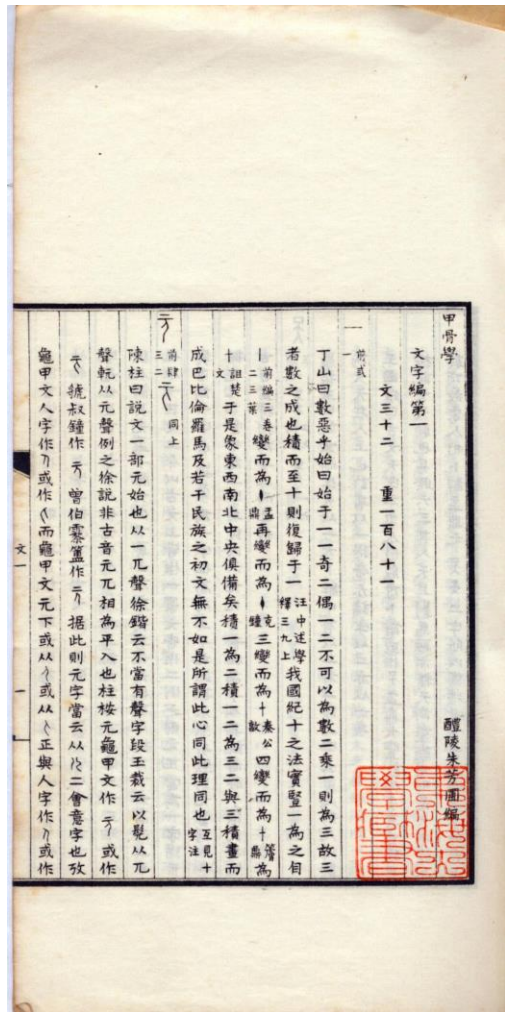 甲骨學
文字編第一
醴陵朱芳圃編
文三十二 重一百八十一
一
前弍
一
丁山曰數惡乎始曰始于一一奇二偶一二不可以為數二乘一則為三故三
者數之成也積而至十則復歸于一 汪中述學釋三九上 我國紀十之法實豎一為之自
丨 前編三卷二三葉 變而為 孟鼎 再變而為 克鐘 三變而為十 秦公敦 四變而為十 鼎為
十 詛楚文 于是象東西南北中央俱備矣積一為二積一二為三二與三積畫而
成巴比倫羅馬及若干民族之初文無不如是所謂此心同此理同也 互見十字注
前肆三二 同上
陳柱曰說文一部元始也从一兀聲徐鍇云不當有聲字段玉裁云以髡从兀
聲軏从元聲例之徐說非古音元兀相為平入也柱桉元龜甲文作 或作
虢叔鐘作 曾伯霥簠作 据此則元字當云从 二會意字也攷
龜甲文人字作 或作 而龜甲文元下或从 或从 正與人字作 或作
文一
一